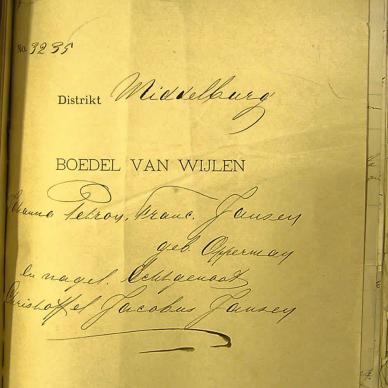 No. 3235
Distrikt Middelburg
BOEDEL VAN WIJLEN
Petron. Franc. Jansen
geb. Opperman
en nagel. Echtgenoot
Christoffel Jacobus Jansen